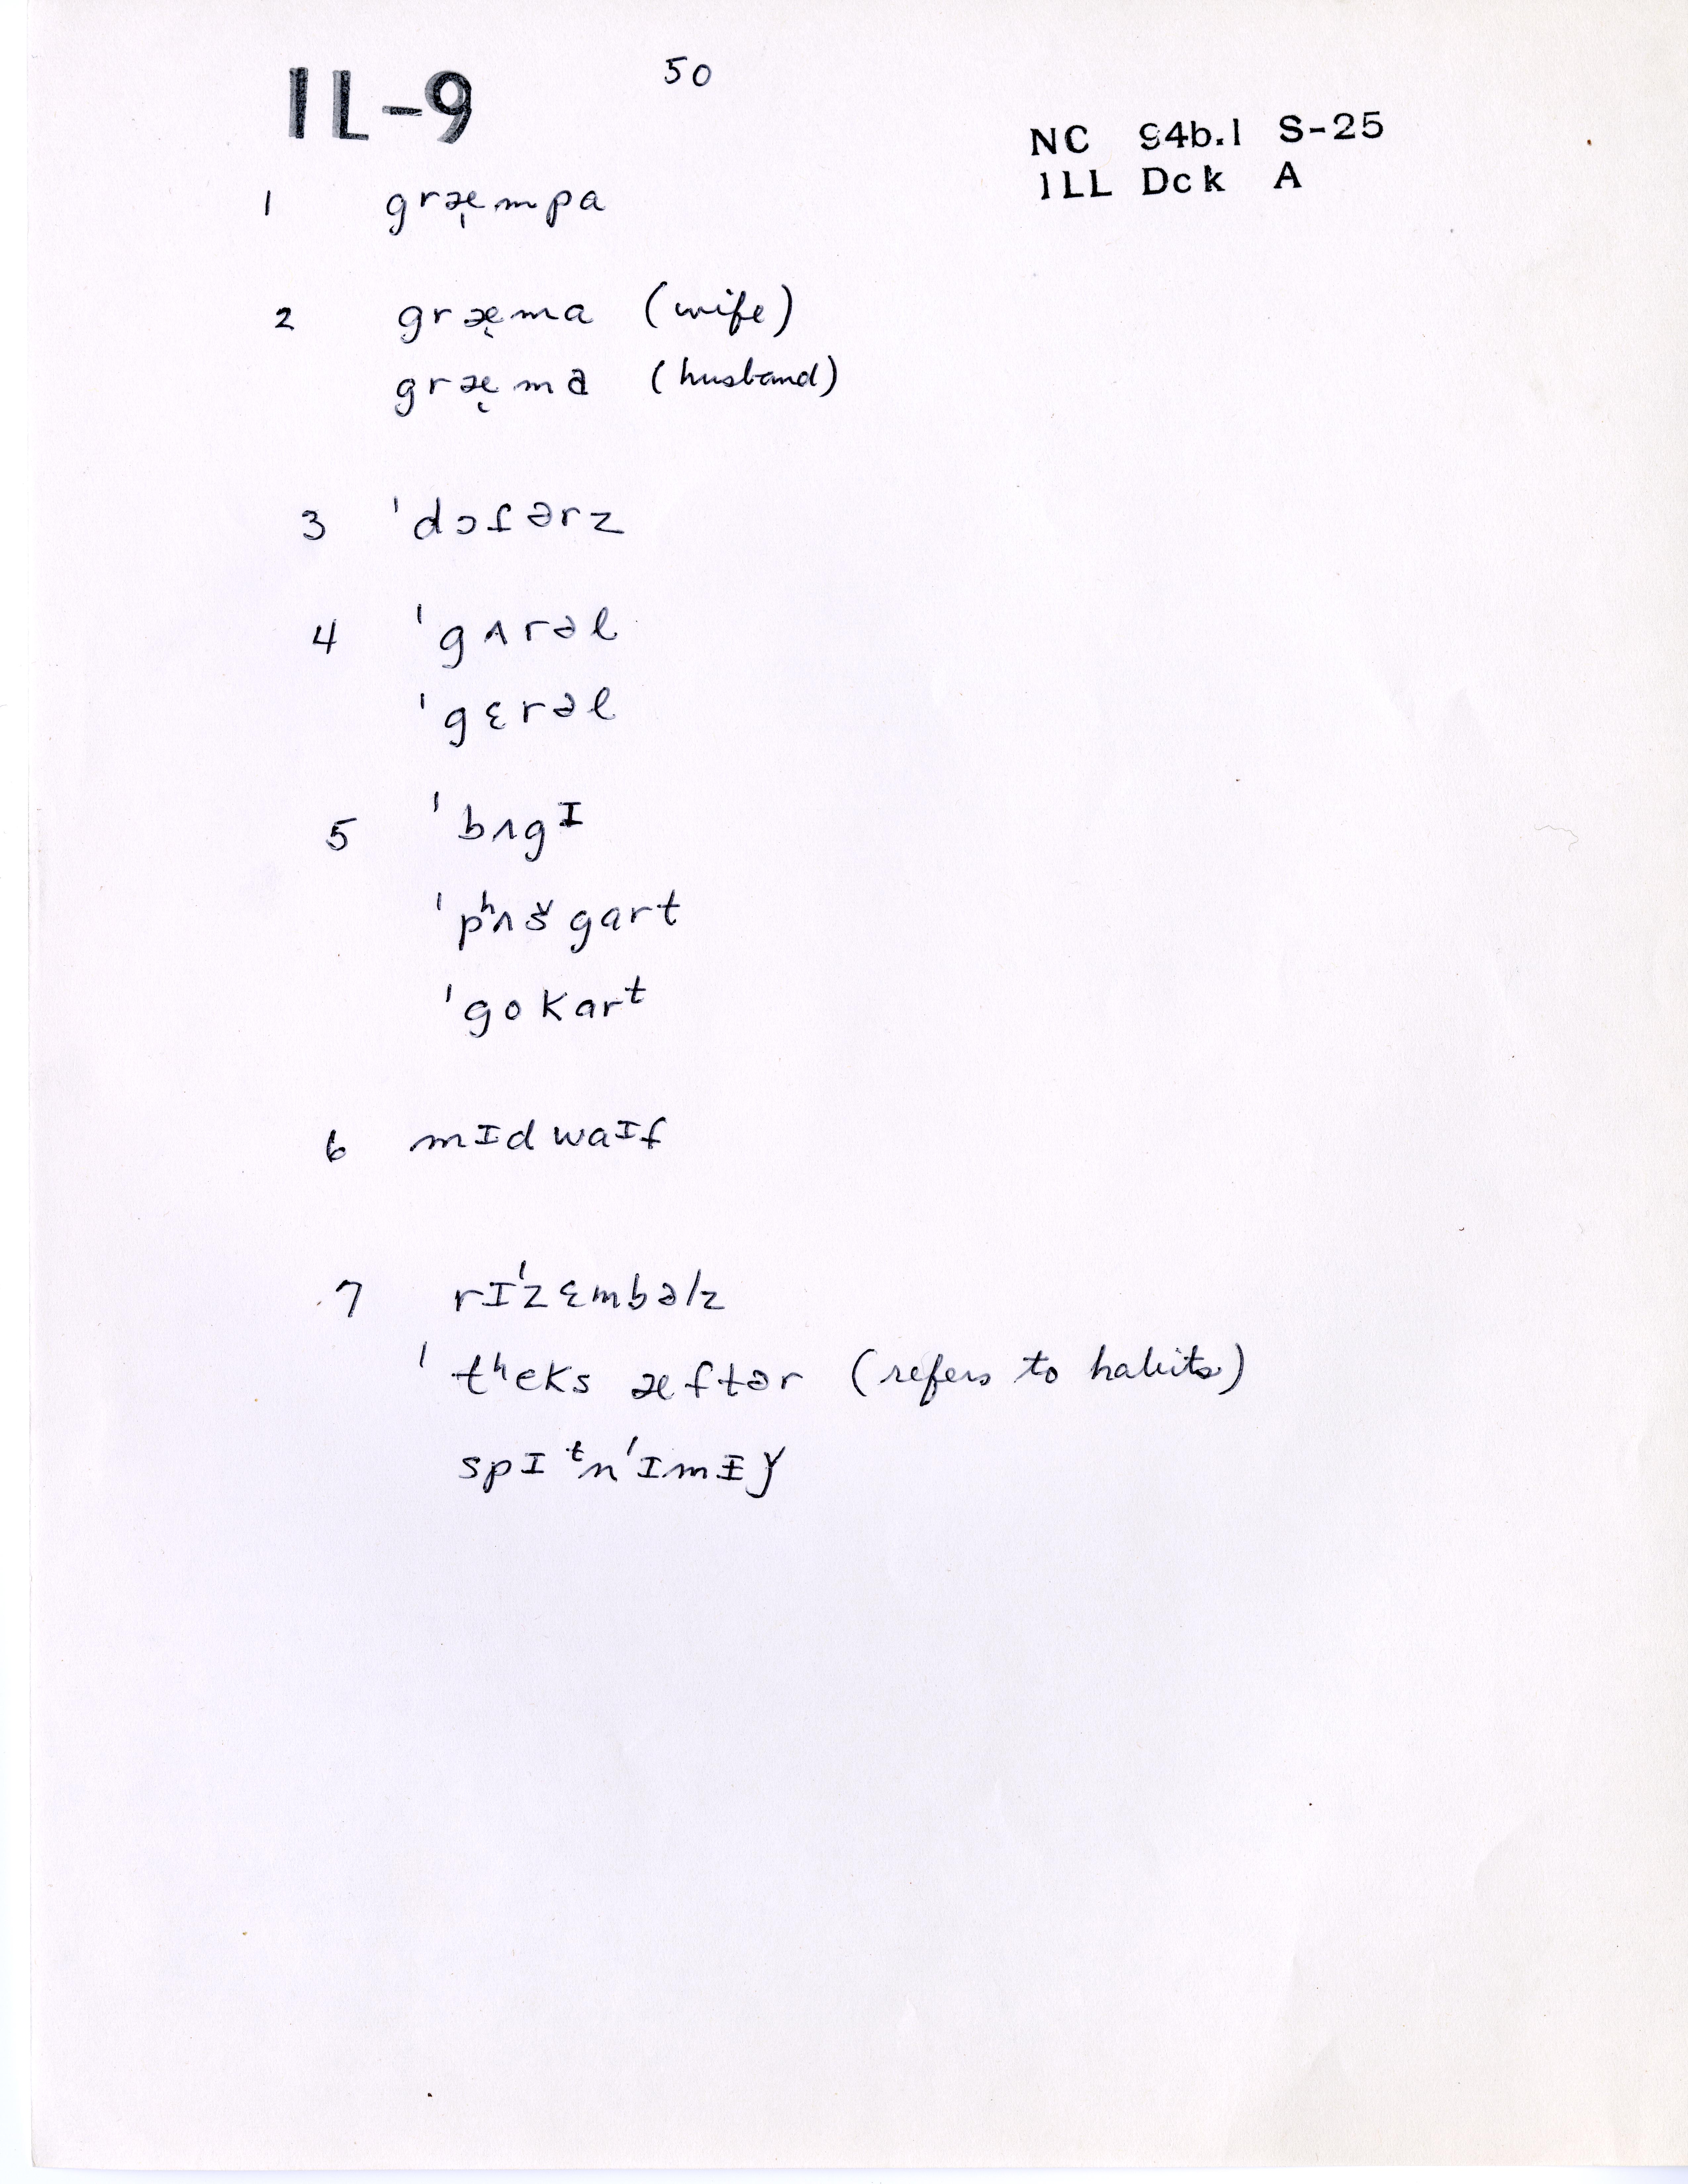 IL-9
50
NC 94b.1 S-25
ILL Dck A
1 græ̩mpa
2 græ̨ma (wife)
græ̨mə (husband)
3 ˈdɔfərz
4 ˈgʌrəl
ˈgɛrəl
5 ˈbʌgᶦ
ˈpʰʌšgart
ˈgokarᵗ
6 mɪdwaɪf
7 rɪˈzɛmbəlz
ˈtʰeks æftər (refers to habits)
spɪᵗnˈɪmɪǰ